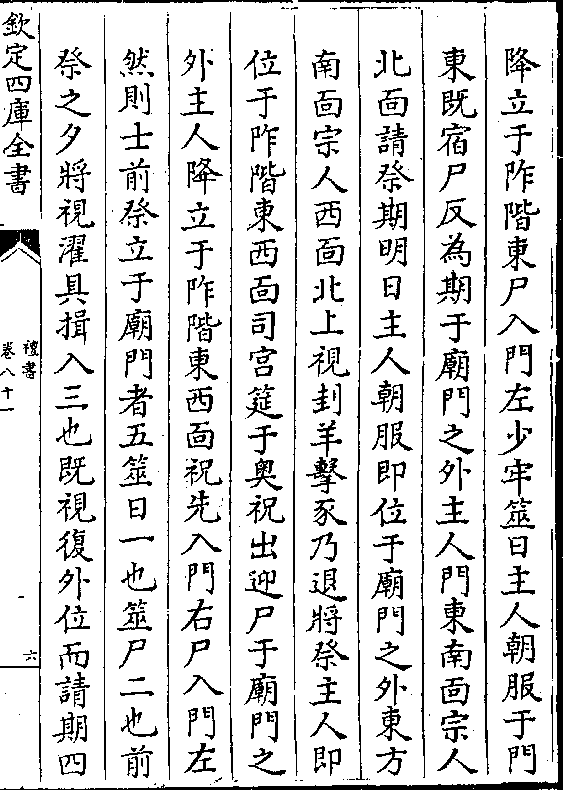 降立于阼階東尸入門左少牢筮日主人朝服于門
東既宿尸反為期于廟門之外主人門東南面宗人
北面請祭期明日主人朝服即位于廟門之外東方
南面宗人西面北上視刲羊擊豕乃退將祭主人即
位于阼階東西面司宮筵于奥祝出迎尸于廟門之
外主人降立于阼階東西面祝先入門右尸入門左
然則士前祭立于廟門者五筮日一也筮尸二也前
祭之夕將視濯具揖入三也既視復外位而請期四
欽定四庫全書
禮書
卷八十一
六